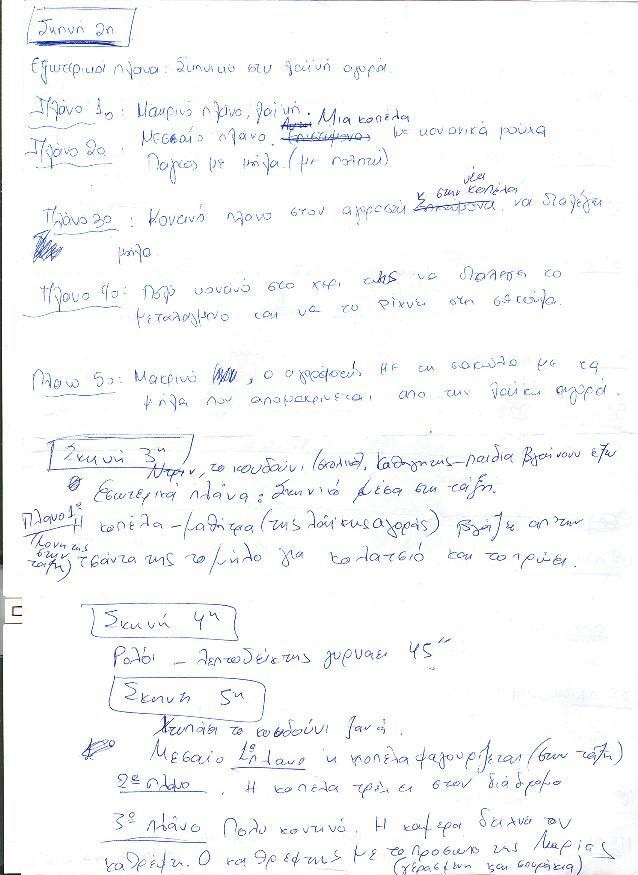 Σκηνή 2η
Εξωτερικά πλάνα: Σκηνικό στη λαϊκή αγορά.
Πλάνο 1ο: Μακρινό πλάνο, λαϊκή.
Μια κοπέλα
Πλάνο 2ο: Μεσαίο πλάνο. με κανονικά ρούχα
Παγκος με μήλα. (με πολιτή)
νέα
στην κοπέλα
Πλάνο 3ο: Κοντινό πλάνο στον αγοραστή να διαλέγει
μήλα
Πλανο 4ο: Πολύ κοντινό στο χερι της να διαλεγει το
μεταλαγμενο και να το ρίχνει στη σακούλα.
Πλανο 5ο: Μακρινό, ο αγοραστής με τη σακουλα με τα
μήλα που απομακρινεται απο την λαικη αγορά.
Σκηνή 3η
Ντριν, το κουδούνι (σχολικό), καθηγητης-παιδια βγαίνουν έξω
Εσωτερικα πλάνα: Σκηνικό μέσα στη τάξη.
Πλανο 1ο Η κοπέλα-μαθήτρα (της λάικης αγοράς) βγάζει απ'την
(μονη της
στην
ταξη) τσάντα της το μήλο για κολατσιό και το τρώει.
Σκηνή 4η
Ρολόι - λεπτοδείκτης γυρναει 45''
Σκηνη 5η
Χτυπάει το κουδούνι ξανά.
Μεσαίο 1ο πλανο η κοπελα φαγουρίζεται (στην τάξη)
2ο πλάνο. Η κοπελα τρέχει στον διάδρομο
3ο πλάνο Πολυ κοντινό. Η καμερα δειχνει τον
καθρέφτη. Ο καθρεφτης με το προσωπο της Μαρίας
(γερασμένη και σπυράκια)